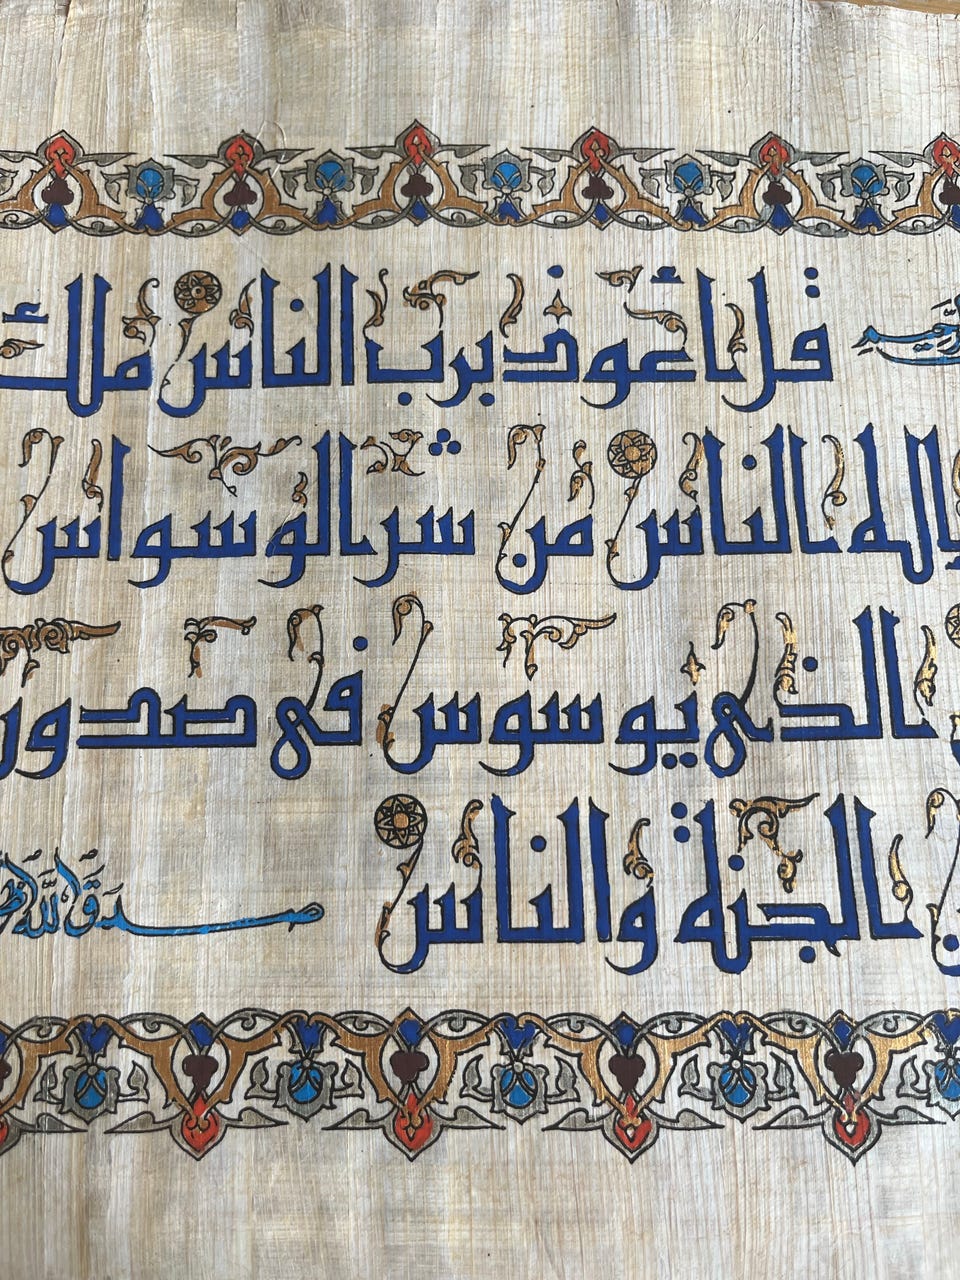 قل أعوذ برب الناس ملك
إله الناس من شر الوسواس
الذي يوسوس فى صدور
الجنة والناس صدق الله